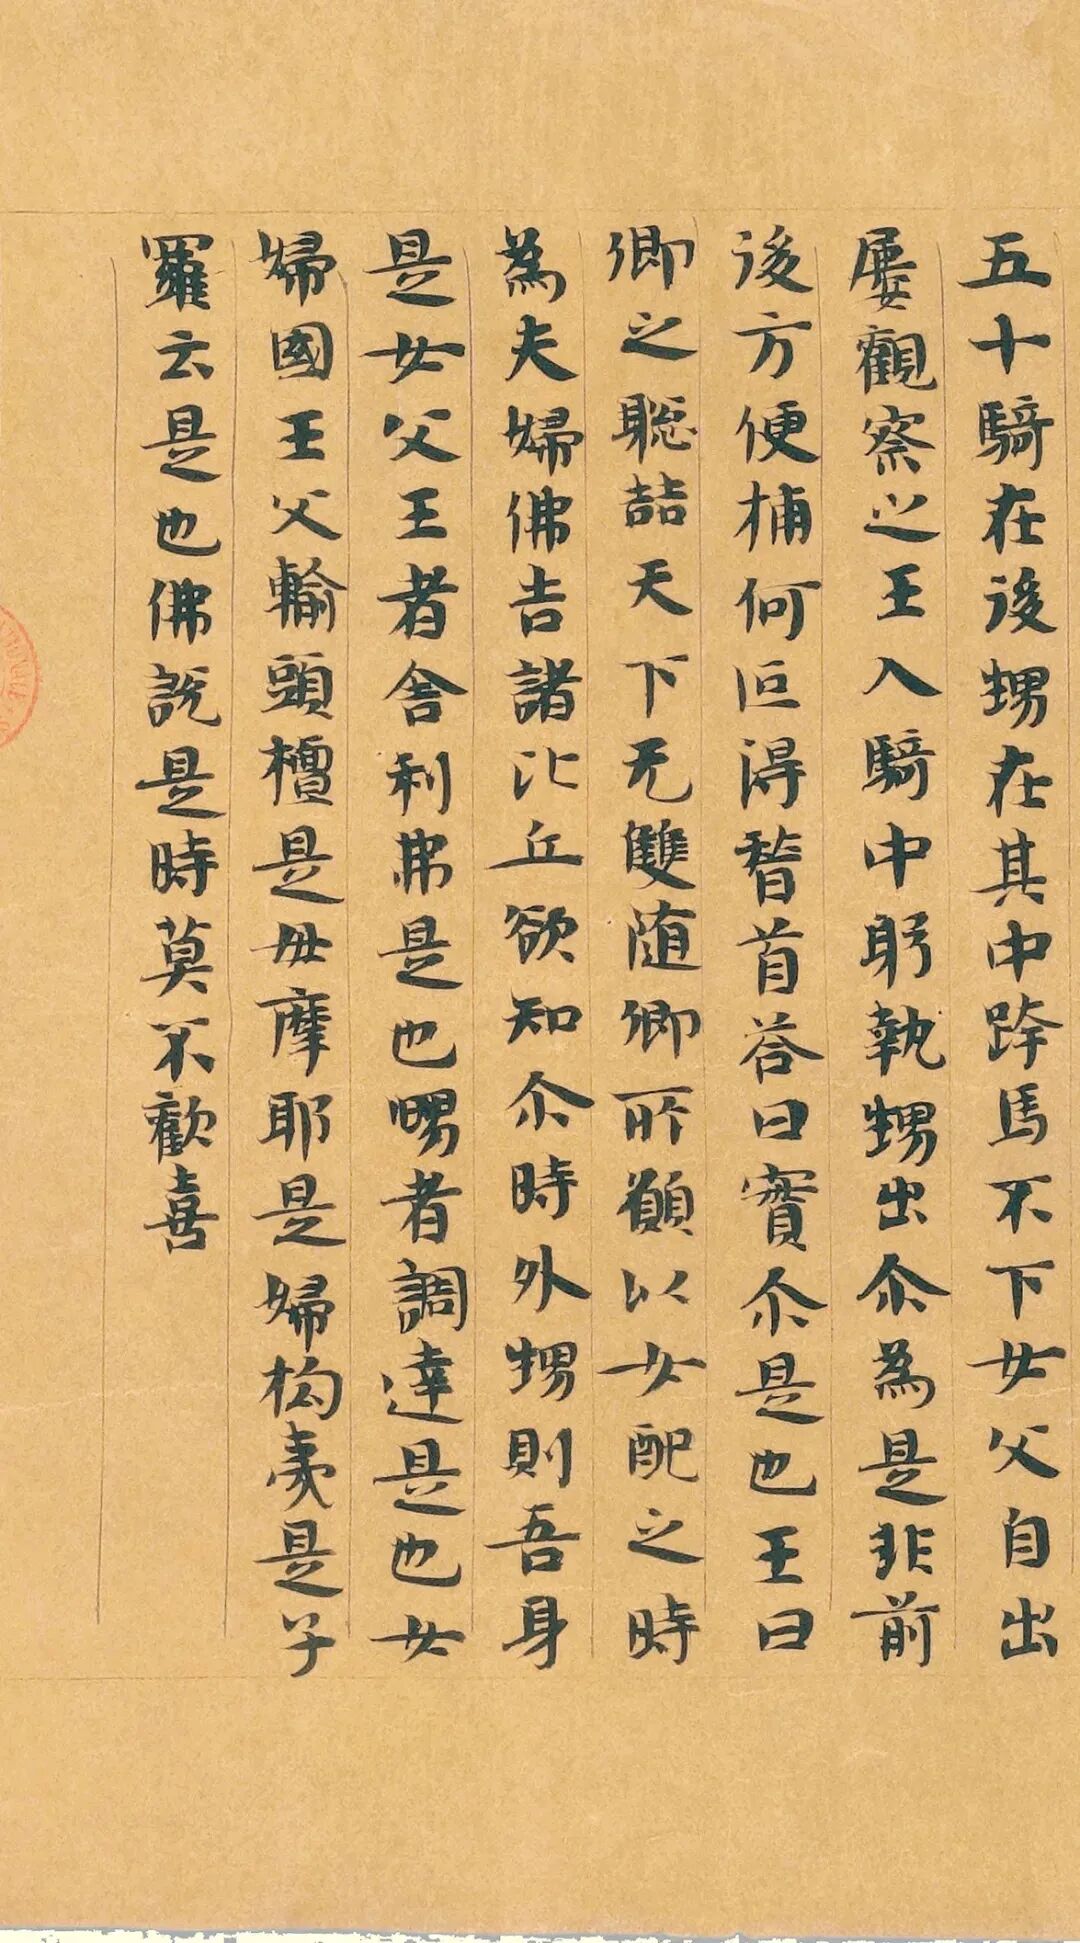 五十騎在後甥在其中跨馬不下女父自出
屢觀察之王入騎中躬執甥出尒為是非前
後方便捕何叵得稽首荅曰實尒是也王曰
卿之聡喆天下无雙随卿所願以女配之時
為夫婦佛告諸比丘欲知尒時外甥則吾身
是女父王者舍利弗是也甥者調達是也女
婦國王父輸頭檀是母摩耶是婦拘夷是子
羅云是也佛説是時莫不歡喜